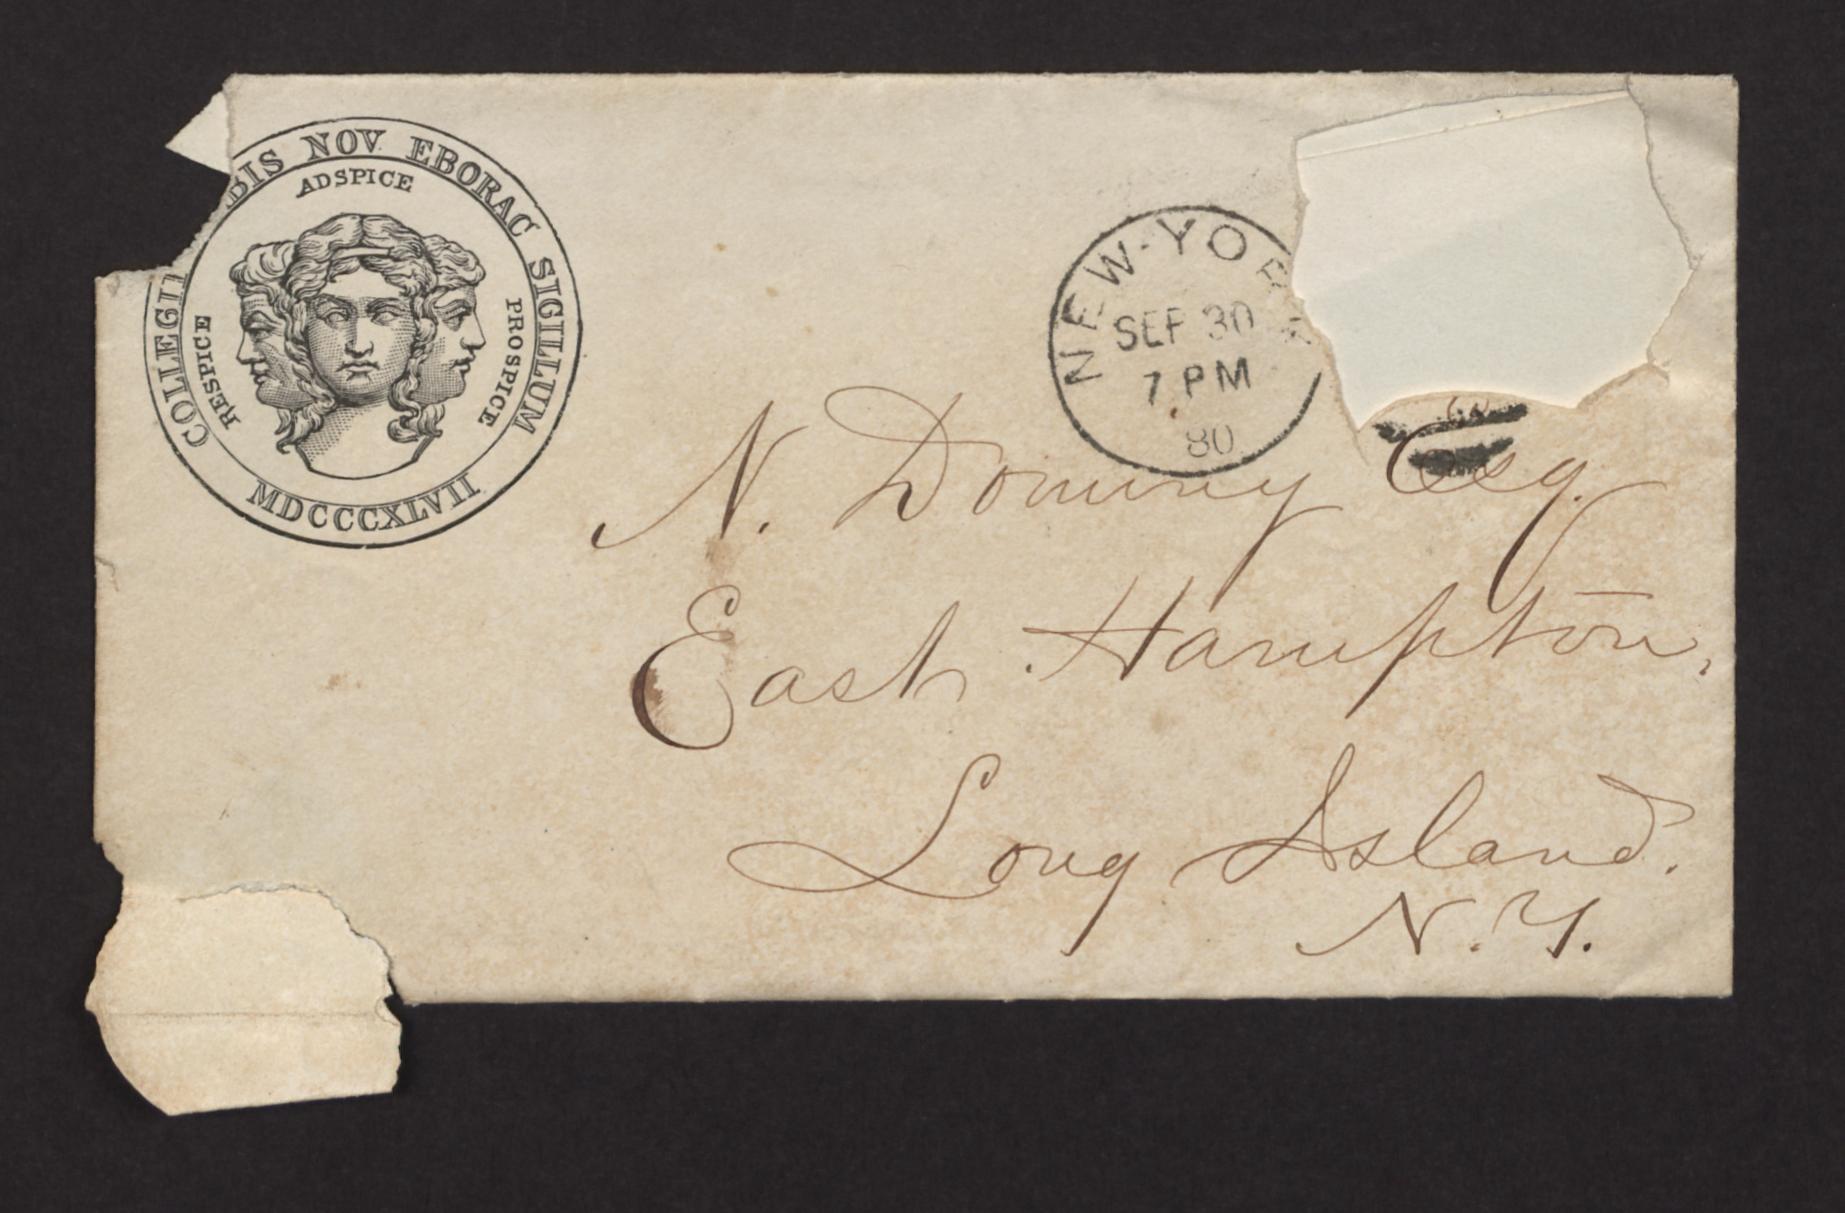 COLLEGII BIS NOV EBORAC SIGILLUM
ADSPICE
RESPICE
PROSPICE
MDCCCXLVII
NEW-YORK
SEP 30
7 PM
80
N. Dominy Esq.
East Hampton,
Long Island.
N.Y.